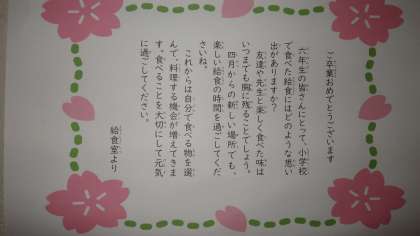 ご卒業おめでとうございます
六年生の皆さんにとって、小学校
で食べた給食にはどのような思い
出がありますか？
友達や先生と楽しく食べた味は
いつまでも胸に残ることでしょう。
四月からの新しい場所でも、
楽しい給食の時間を過ごしてくだ
さいね。
これからは自分で食べる物を選
んで、料理する機会が増えてきま
す。食べることを大切にして元気
に過ごしてください。
給食室より